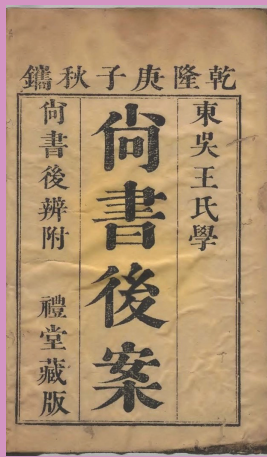 乾隆庚子秋鐫
東吳王氏學
尚書後案
尚書後辨附 禮堂藏版